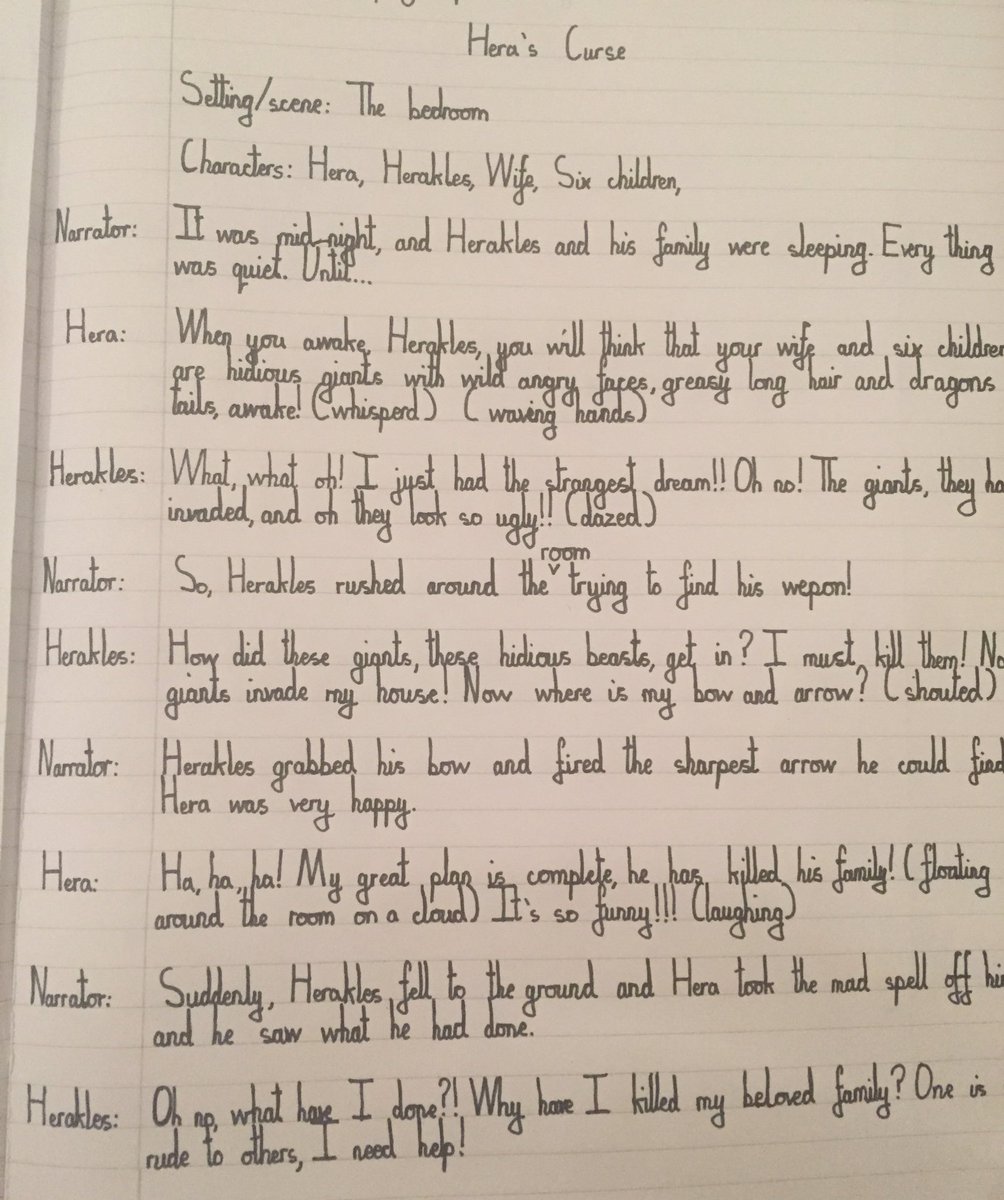 Hera's Curse
Setting/scene: The bedroom
Characters: Hera, Herakles, Wife, Six children,
Narrator: It was mid-night, and Herakles and his family were sleeping. Every thing
was quiet. Until...
Hera: When you awake, Herakles, you will think that your wife and six children
are hidious giants with wild angry faces, greasy long hair and dragons
tails, awake! (whisperd) (waving hands)
Herakles: What, what oh! I just had the strangest dream!! Oh no! The giants, they ha
invaded, and oh they look so ugly!! (dazed)
room
Narrator: So, Herakles rushed around the trying to find his wepon!
Herakles: How did these giants, these hidious beasts, get in? I must kill them! No
giants invade my house! Now where is my bow and arrow? (shouted)
Narrator: Herakles grabbed his bow and fired the sharpest arrow he could find
Hera was very happy.
Hera: Ha, ha, ha! My great plan is complete, he has killed his family! (floating
around the room on a cloud) It's so funny!!! (laughing)
Narrator: Suddenly, Herakles fell to the ground and Hera took the mad spell off hi
and he saw what he had done.
Herakles: Oh no, what have I done?! Why have I killed my beloved family? One is
rude to others, I need help!